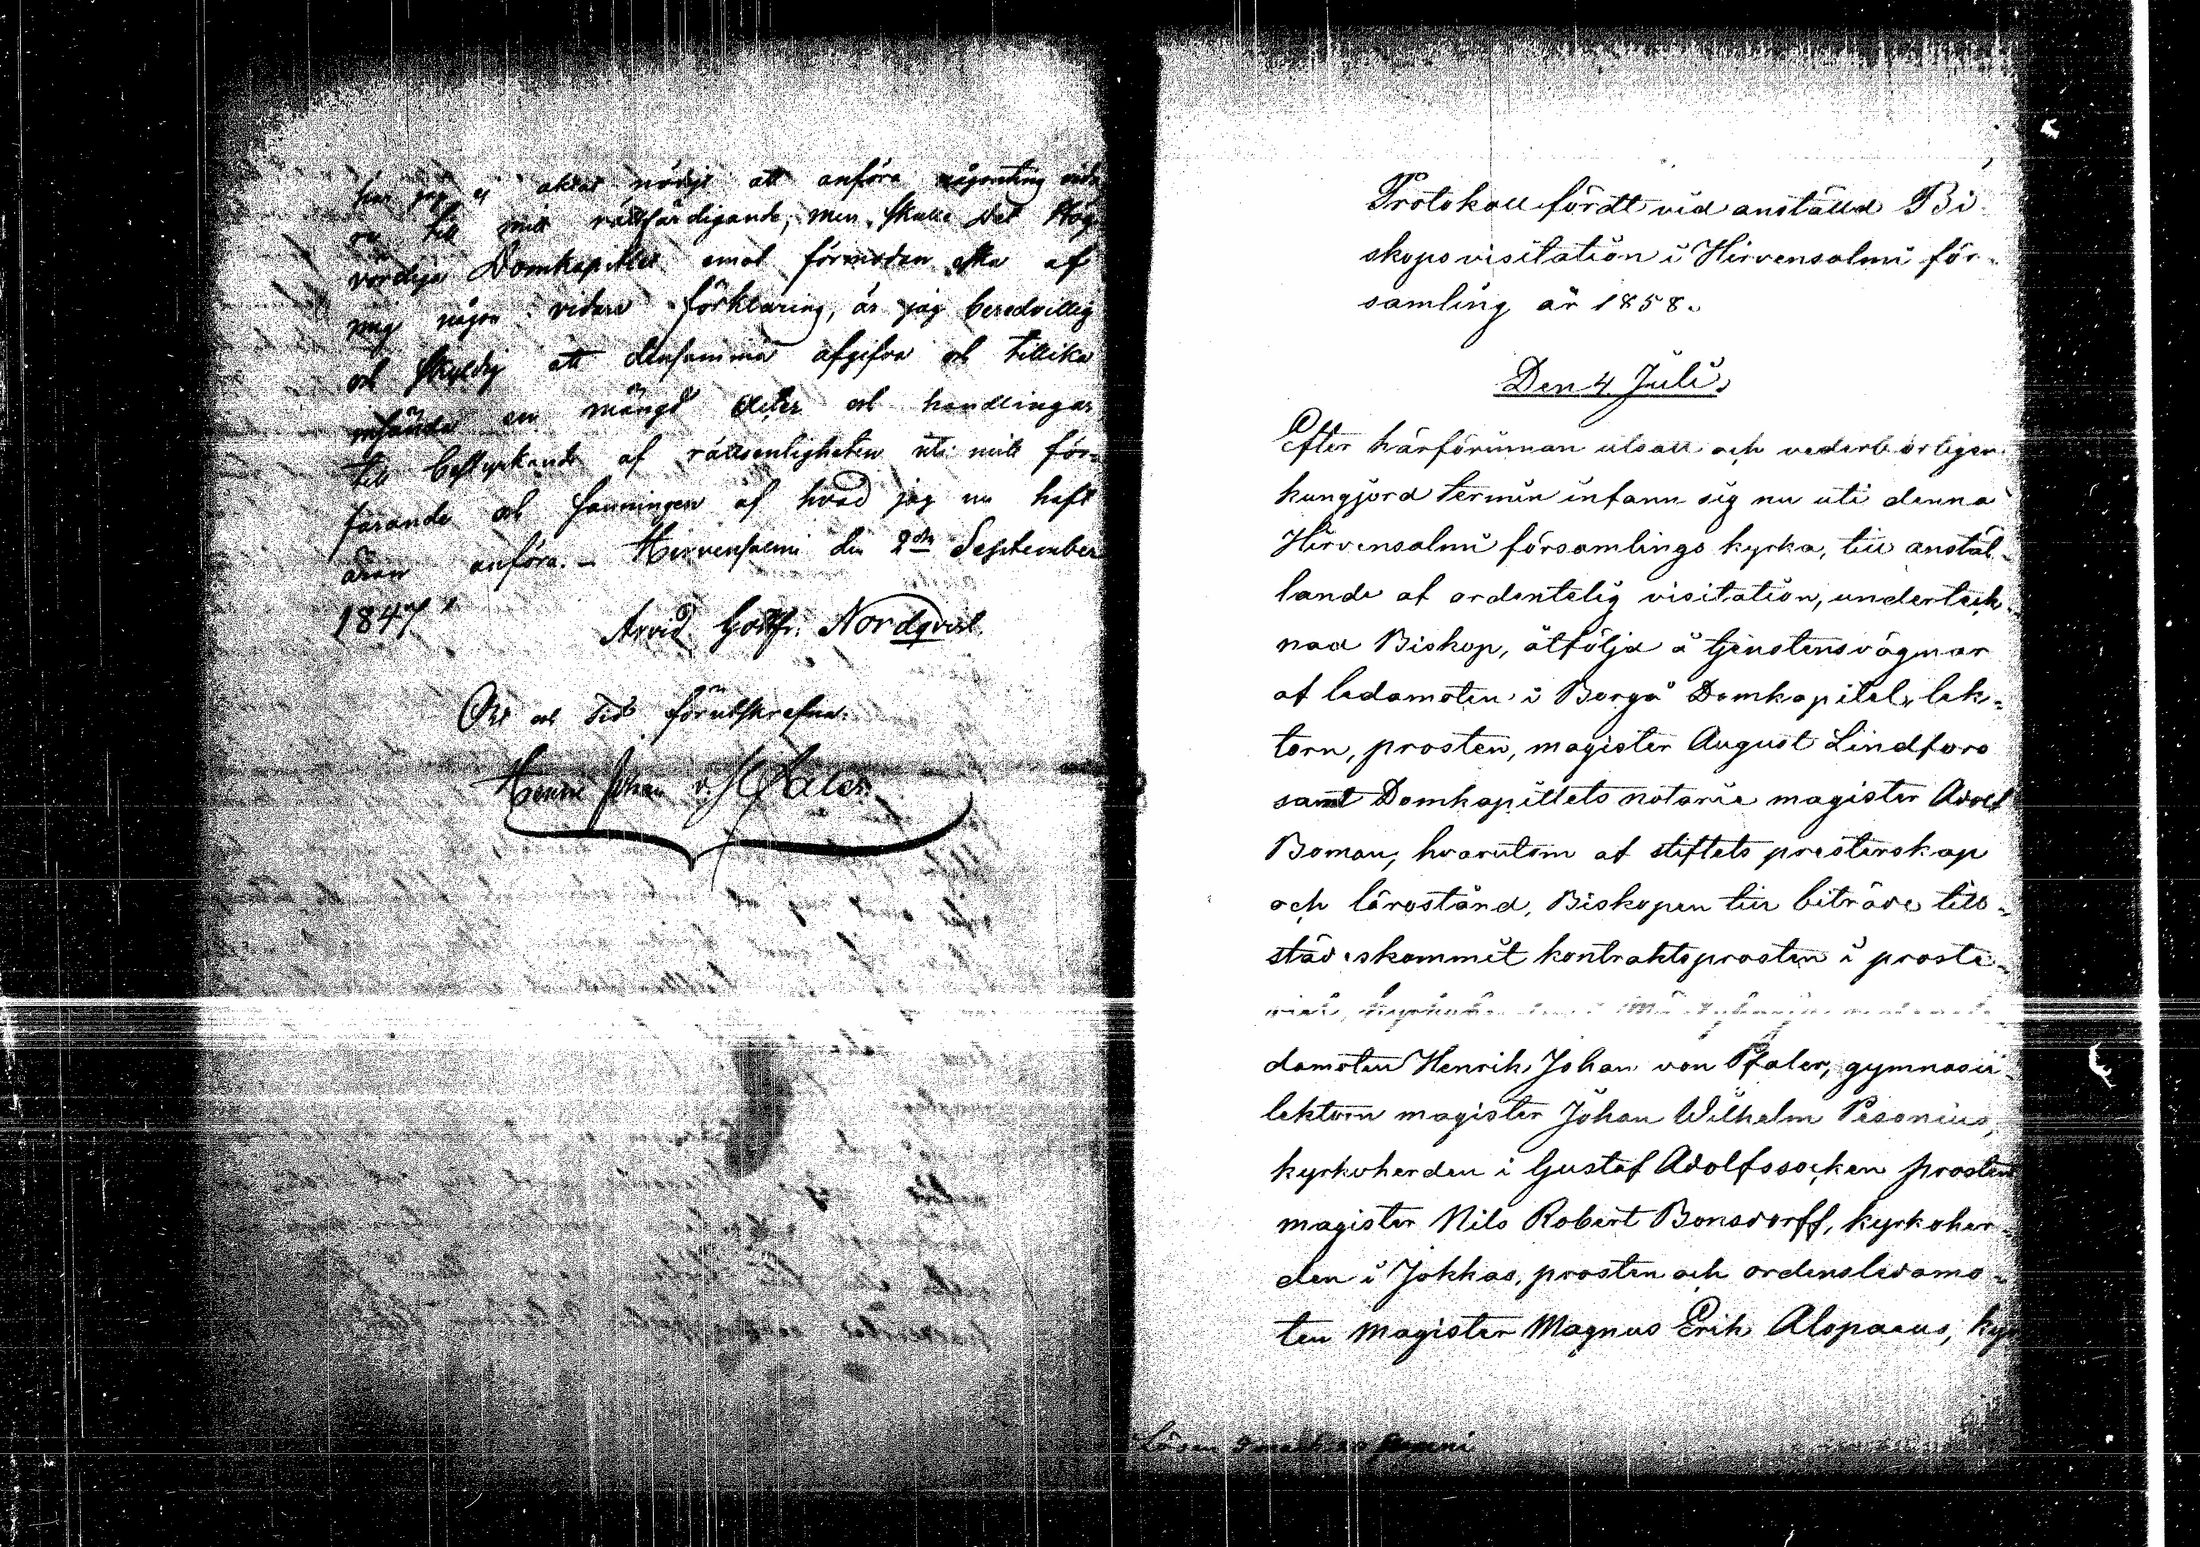 har jag ej aktat nödigt att anföra någonting vida
re till mitt rättfärdigande, men skulle Det Hög
vördiga Domkapitlet emot förmodan äska af
mig någon vidare förklaring, är jag beredvillig
och skyldig att densamma afgifva och tillika
insända en mängd acter och handlingar
till bestyrkande af rättsenligheten uti mitt för-
farande och sanningen af hvad jag nu haft
äran anföra. – Hirvensalmi den 2dra September
1847.
Arvid Gottfr. Nordqvist.
Ort och tid förutskrefna.
Henric Johan v. Pfaler
Protokoll fördt vid anställd Bi
skopsvisitation i Hirvensalmi för-
samling år 1858.
Den 4 Juli.
Efter härförinnan utsatt och vederbörligen
kungjord termin infann sig nu uti denna
Hirvensalmi församlings kyrka, till anstäl-
lande af ordentelig visitation, underteck-
nad Biskop, åtföljd å tjenstens vägnar
af ledamoten i Borgå Domkapitel, lek-
torn, prosten, magister August Lindfors
samt Domkapitlets notarie magister Adolf
Boman, hvarutom af stiftets presterskap
och lärostånd, Biskopen till biträde till-
städeskommit kontraktsprosten i proste-
damoten Henrik Johan von Pfaler, gymnasii
lektorn magister Johan Wilhelm Pesonius,
kyrkoherden i Gustaf Adolfssocken prosten
magister Nils Robert Bonsdorff, kyrkoher-
den i Jokkas, prosten och ordensledamo-
ten magister Magnus Erik Alopaeus, kyr
Lösen